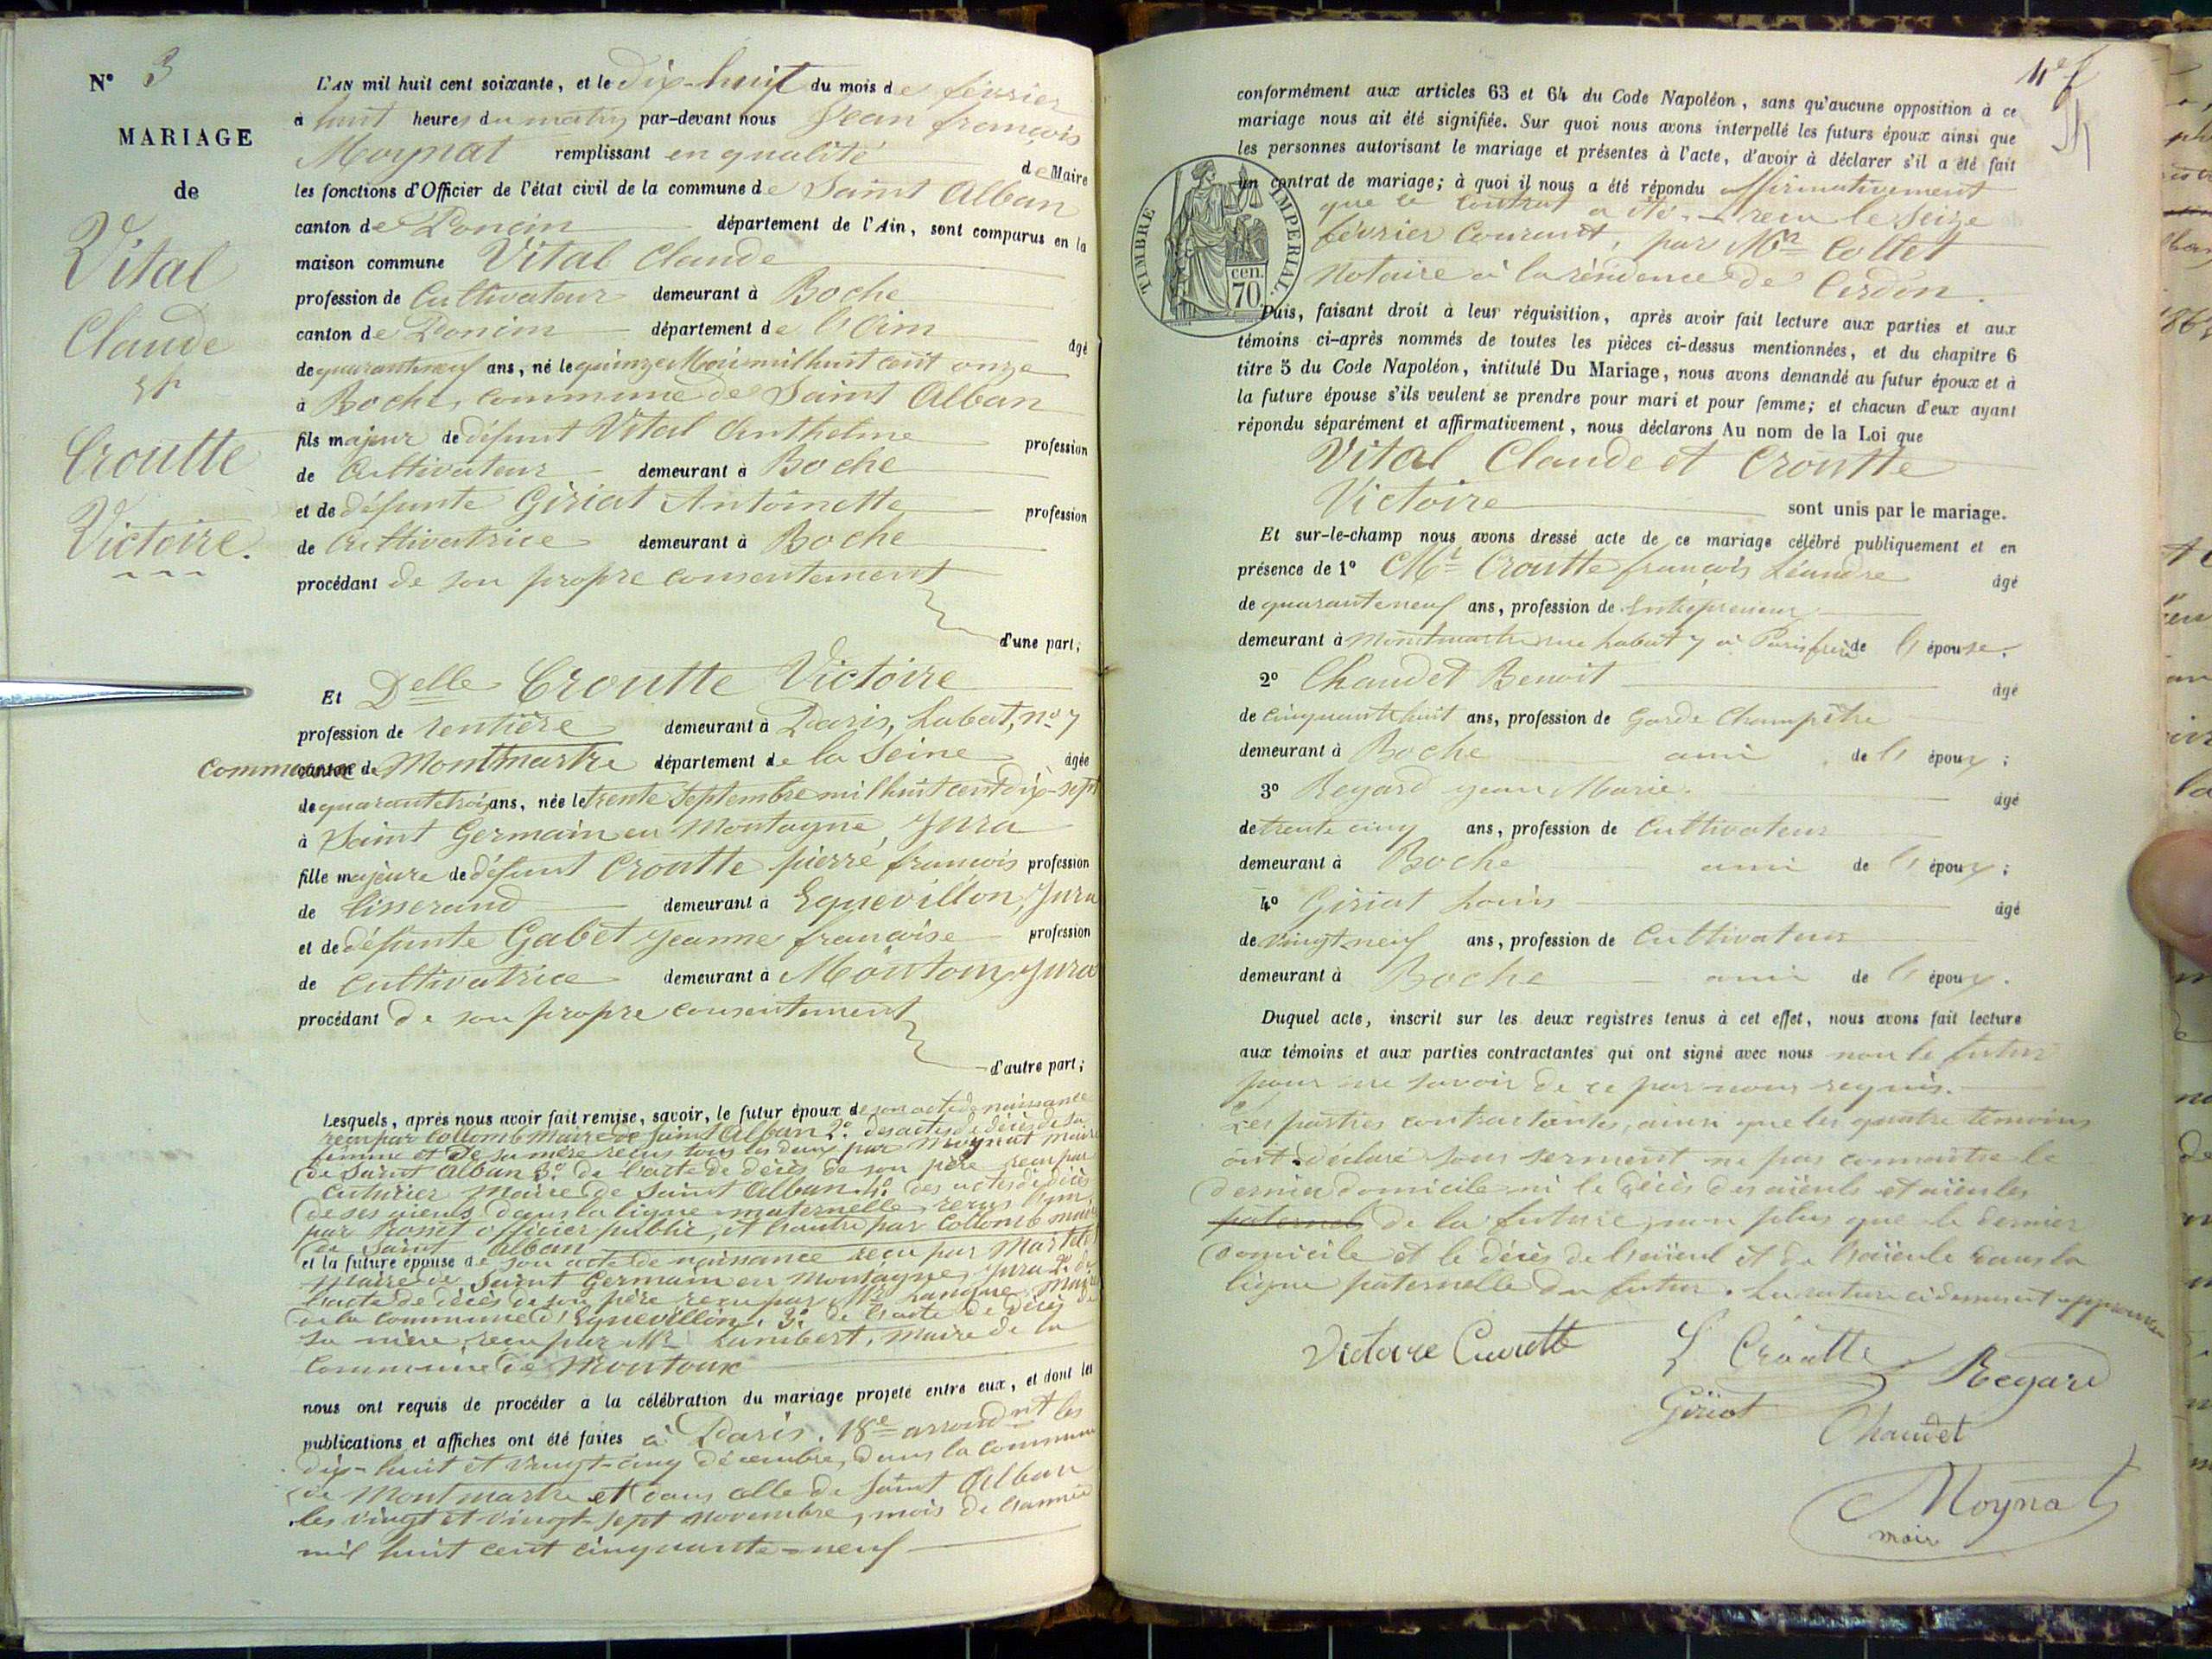 N° 3
MARIAGE
de
Vital
Claude
et
Croutte
Victoire.
L'AN mil huit cent soixante, et le dix-huit du mois de février
à huit heures du matin par-devant nous Jean françois
Moynat remplissant en qualité de Maire
les fonctions d'Officier de l'état civil de la commune de Saint Alban
canton de Poncin département de l'Ain, sont comparus en la
maison commune Vital Claude
profession de Cultivateur demeurant à Boche
canton de Poncin département de l'Ain âgé
de quaranteneuf ans, né le quinze Mai mil huit cent onze
à Boche, commune de Saint Alban
fils majeur de défunt Vital Anthelme profession
de Cultivateur demeurant à Boche
et de défunte Giriat Antoinette profession
de Cultivatrice demeurant à Boche
procédant de son propre consentement
d'une part;
Et Delle Croutte Victoire
profession de rentière demeurant à Paris, Labat, no 7
commune de Montmartre département de la Seine âgée
de quarantetrois ans, née le trente Septembre mil huit cent dix-sept
à Saint Germain en Montagne, Jura
fille majeure de défunt Croutte pierre françois profession
de tisserand demeurant à Equevillon, Jura
et de défunte Gabet jeanne françoise profession
de Cultivatrice demeurant à Montoux, Jura
procédant de son propre consentement
d'autre part;
Lesquels, après nous avoir fait remise, savoir, le futur époux de son acte de naissance
reçu par Collomb maire de Saint Alban 2° des actes de décès de sa
femme et de sa mère reçus tous les deux par Moynat maire
de Saint Alban 3° de l'acte de décès de son père reçu par
Cuturier Maire de Saint Alban 4° des actes de décès
de ses aïeuls dans la ligne maternelle reçus l'un
par Rosset officier public, et l'autre par Collomb maire
de Saint Alban
et la future épouse de son acte de naissance reçu par Martelet
Maire de Saint Germain en Montagne, Jura 2° de
l'acte de décès de son père reçu par Mr maire
de la commune d'Equevillon. 3° de l'acte de décès de
sa mère, reçu par Mr Lambert, maire de la
Commune de Montoux
nous ont requis de procéder à la célébration du mariage projeté entre eux, et dont les
publications et affiches ont été faites à Paris. 18e arrondnt les
dix-huit et vingt-cinq décembre, dans la commune
de Montmartre et dans celle de Saint Alban
les vingt et vingt-sept novembre, mois de l'année
mil huit cent cinquante-neuf
4e f
conformément aux articles 63 et 64 du Code Napoléon, sans qu'aucune opposition à ce
mariage nous ait été signifiée. Sur quoi nous avons interpellé les futurs époux ainsi que
les personnes autorisant le mariage et présentes à l'acte, d'avoir à déclarer s'il a été fait
un contrat de mariage; à quoi il nous a été répondu affirmativement
que le contrat a été reçu le Seize
février Courant, par Me Collet
Notaire à la résidence de Cerdon.
TIMBRE IMPERIAL
cen.
70
Puis, faisant droit à leur réquisition, après avoir fait lecture aux parties et aux
témoins ci-après nommés de toutes les pièces ci-dessus mentionnées, et du chapitre 6
titre 5 du Code Napoléon, intitulé Du Mariage, nous avons demandé au futur époux et à
la future épouse s'ils veulent se prendre pour mari et pour femme; et chacun d'eux ayant
répondu séparément et affirmativement, nous déclarons Au nom de la Loi que
Vital Claude et Croutte
Victoire sont unis par le mariage.
Et sur-le-champ nous avons dressé acte de ce mariage célébré publiquement et en
présence de 1° Mr Croutte françois Léandre âgé
de quaranteneuf ans, profession de Entrepreneur
demeurant à Montmartre rue Labat 7 à Paris frère de l'épouse,
2° Chaudet Benoit âgé
de cinquante huit ans, profession de Garde Champêtre
demeurant à Boche ami de l'époux;
3° Regard jean Marie. âgé
de trente cinq ans, profession de Cultivateur
demeurant à Boche ami de l'époux;
4° Giriat Louis âgé
de vingt neuf ans, profession de Cultivateur
demeurant à Boche ami de l'époux.
Duquel acte, inscrit sur les deux registres tenus à cet effet, nous avons fait lecture
aux témoins et aux parties contractantes qui ont signé avec nous non le futur
pour ne savoir de ce par nous requis.
Les parties contractantes, ainsi que les quatre témoins
ont déclaré sous serment ne pas connaître le
dernier domicile ni le décès des aïeuls et aïeules
paternels de la future, non plus que le dernier
domicile et le décès de l'aïeul et de l'aïeule dans la
ligne paternelle du futur. La rature ci dessus est approuvée
Victoire Croutte
L Croutte
Regard
Giriat
Chaudet
Moynat
maire